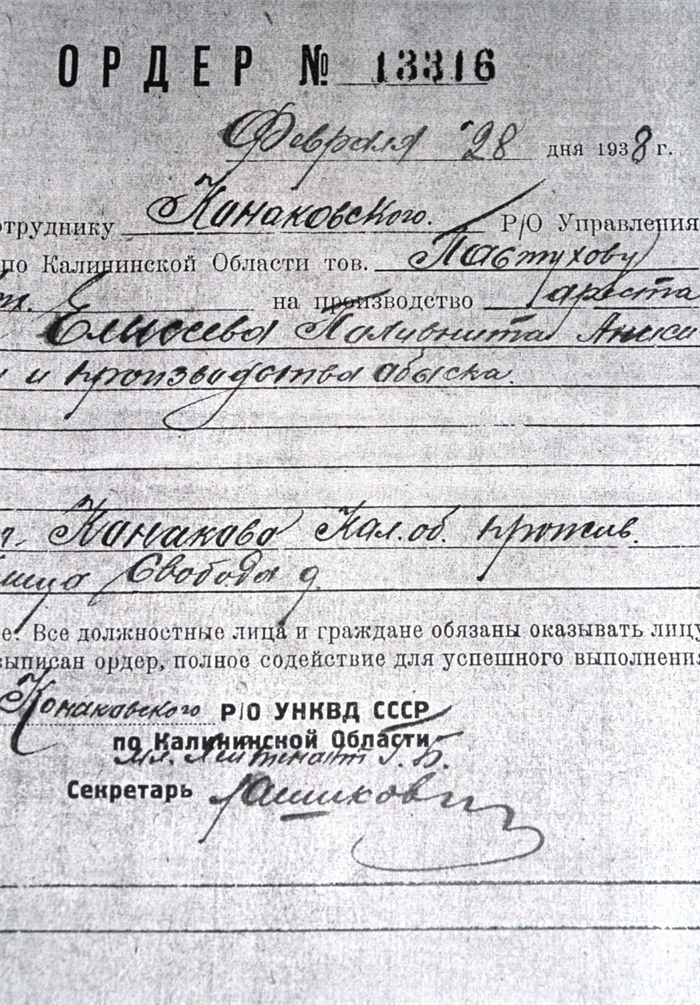 ОРДЕР № 13316
Февраля 28 дня 1938 г.
отруднику Конаковского. Р/О Управления
по Калининской Области тов. Павтухову
на производство ареста
Елисеева
и производства обыска.
Конаково Кал. об. прожив.
Свобода д.
е: Все должностные лица и граждане обязаны оказывать лицу
выписан ордер, полное содействие для успешного выполнени
Конаковского Р/О УНКВД СССР
по Калининской Области
Мл. Лейтенант Г. Б.
Секретарь